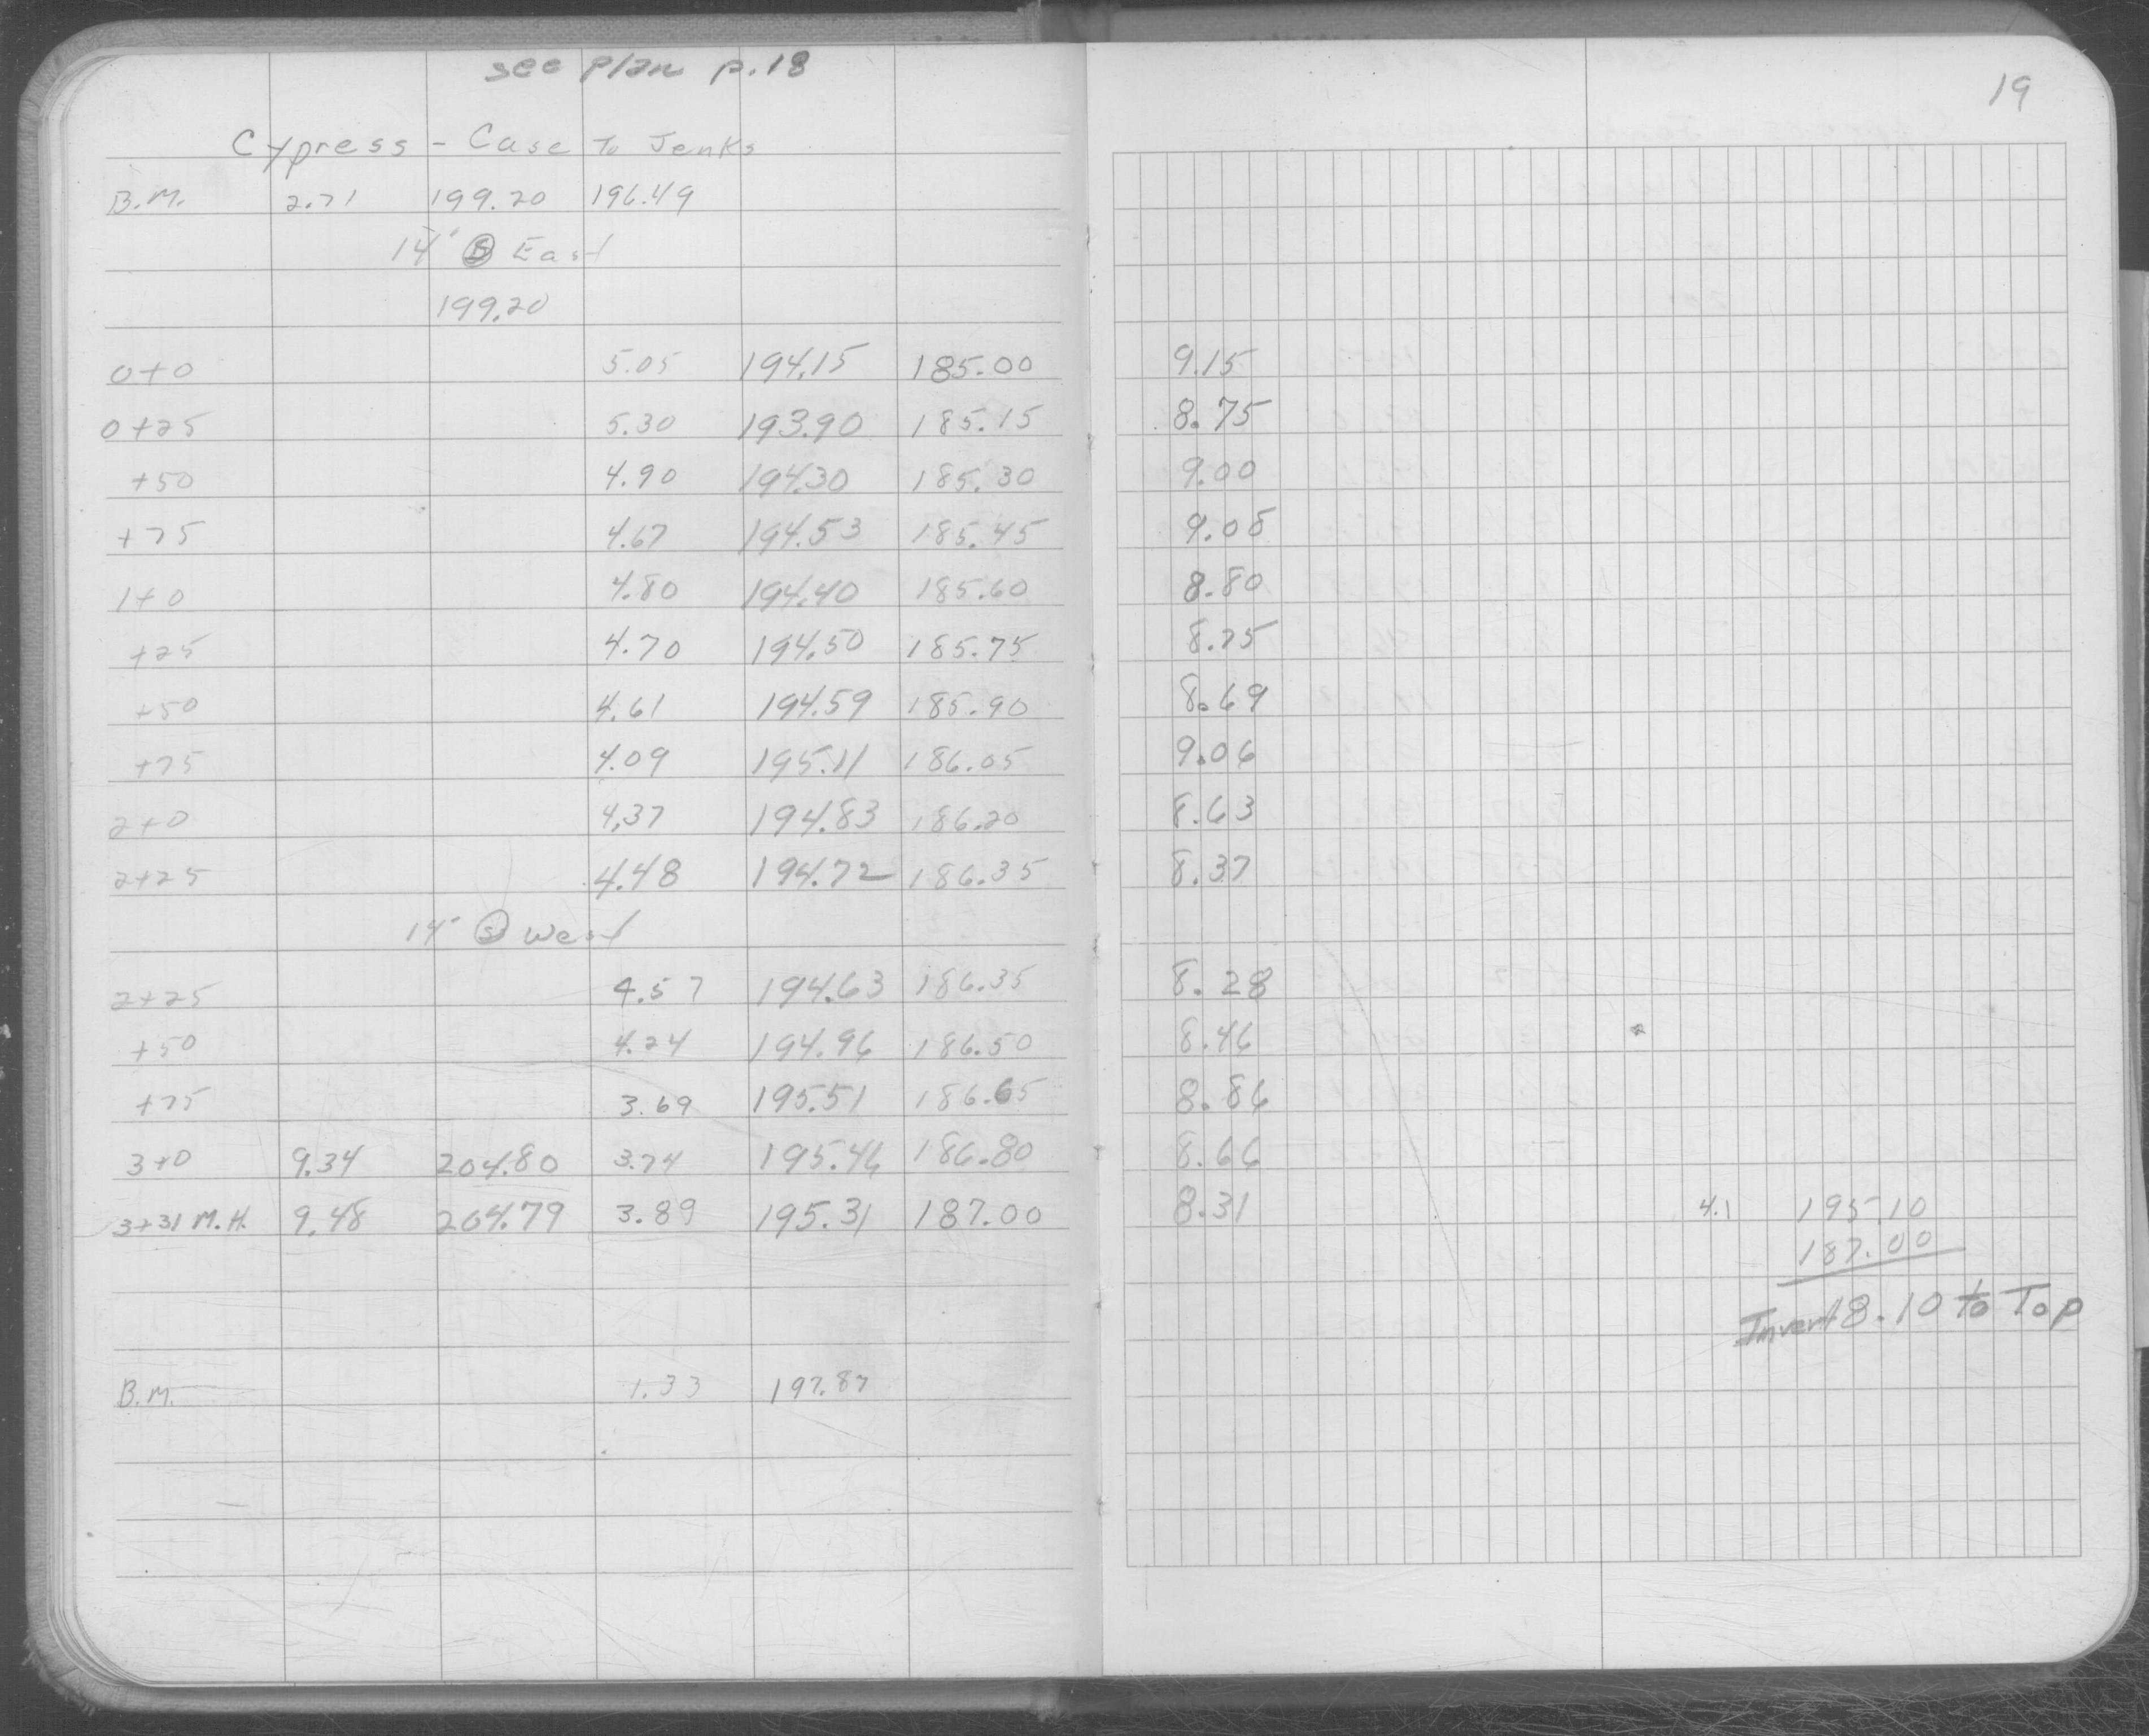 see plan p.18
19
Cypress - Case To Jenks
B.M. 2.71 199.20 196.49
14' Ⓢ East
199.20
0+0 5.05 194.15 185.00 9.15
0+25 5.30 193.90 185.15 8.75
+50 4.90 194.30 185.30 9.00
+75 4.67 194.53 185.45 9.08
1+0 4.80 194.40 185.60 8.80
+25 4.70 194.50 185.75 8.75
+50 4.61 194.59 185.90 8.69
+75 4.09 195.11 186.05 9.06
2+0 4.37 194.83 186.20 8.63
2+25 4.48 194.72 186.35 8.37
14' Ⓢ West
2+25 4.57 194.63 186.35 8.28
+50 4.24 194.96 186.50 8.46
+75 3.69 195.51 186.65 8.86
3+0 9.34 204.80 3.74 195.46 186.80 8.66
3+31 M.H. 9.48 204.79 3.89 195.31 187.00 8.31 4.1 195.10
187.00
Invert 8.10 to Top
B.M. 1.33 197.87